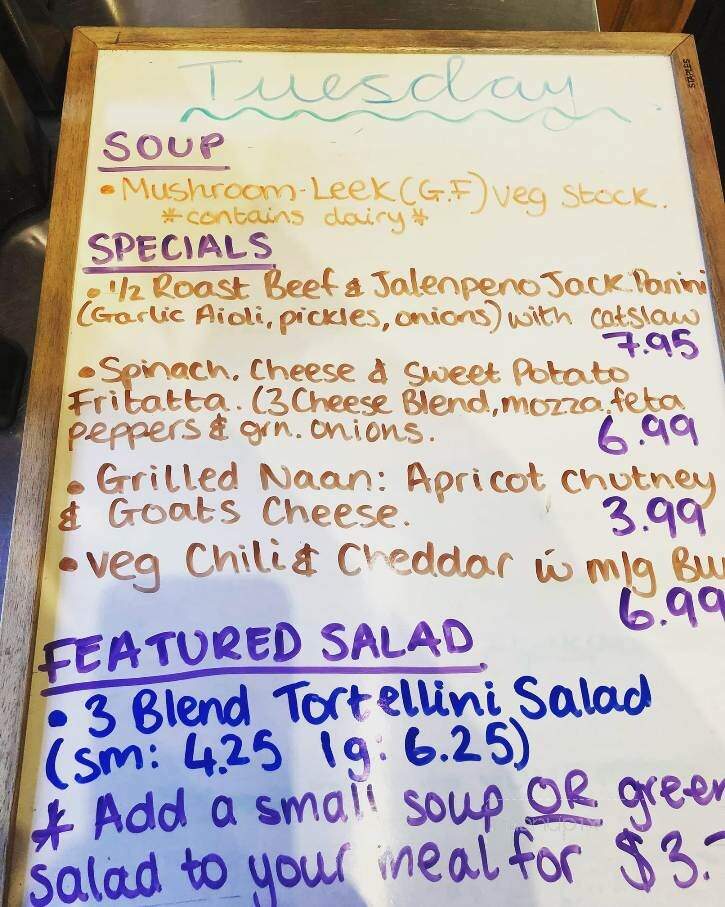 Tuesday
STAPLES
SOUP
• Mushroom-Leek (G.F) veg stock.
*contains dairy*
SPECIALS
• 1/2 Roast Beef & Jalenpeno Jack Panini
(Garlic Aioli, pickles, onions) with catslaw
7.95
• Spinach, Cheese & Sweet Potato
Fritatta. (3 Cheese Blend, mozza, feta
peppers & grn. onions.
6.99
• Grilled Naan: Apricot chutney
& Goats Cheese.
3.99
• veg Chili & Cheddar w m/g Bu
6.99
FEATURED SALAD
• 3 Blend Tortellini Salad
(sm: 4.25 lg: 6.25)
* Add a small soup OR green
salad to your meal for $3.